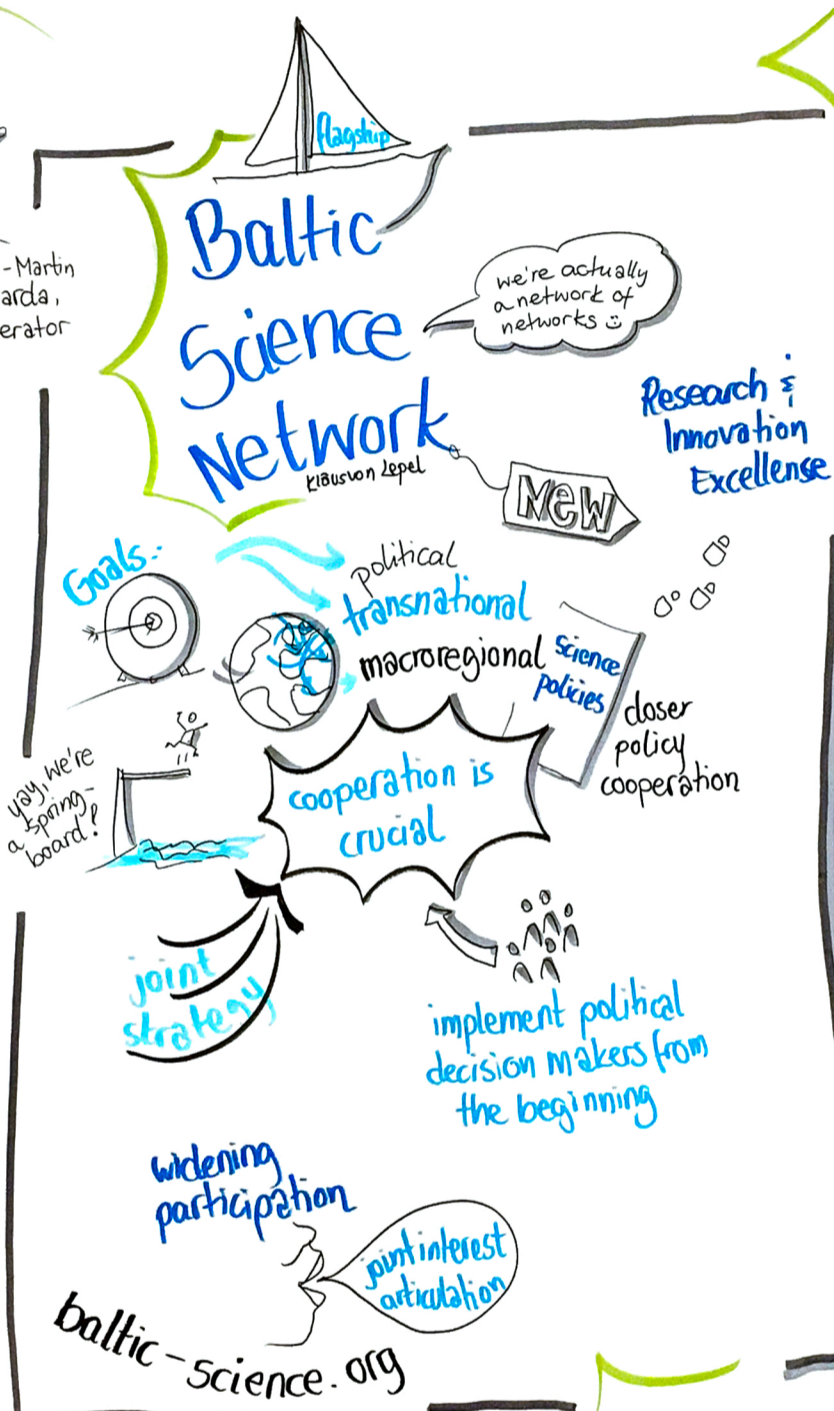 flagship
Baltic
Science
Network
Klaus von Lepel
-Martin
arda,
erator
we're actually
a network of
networks
NEW
Research &
Innovation
Excellense
Goals:
political
transnational
macroregional
science
policies
closer
policy
cooperation
yay, we're
a spring-
board!
cooperation is
crucial
joint
strategy
implement political
decision makers from
the beginning
widening
participation
joint interest
articulation
baltic-science.org